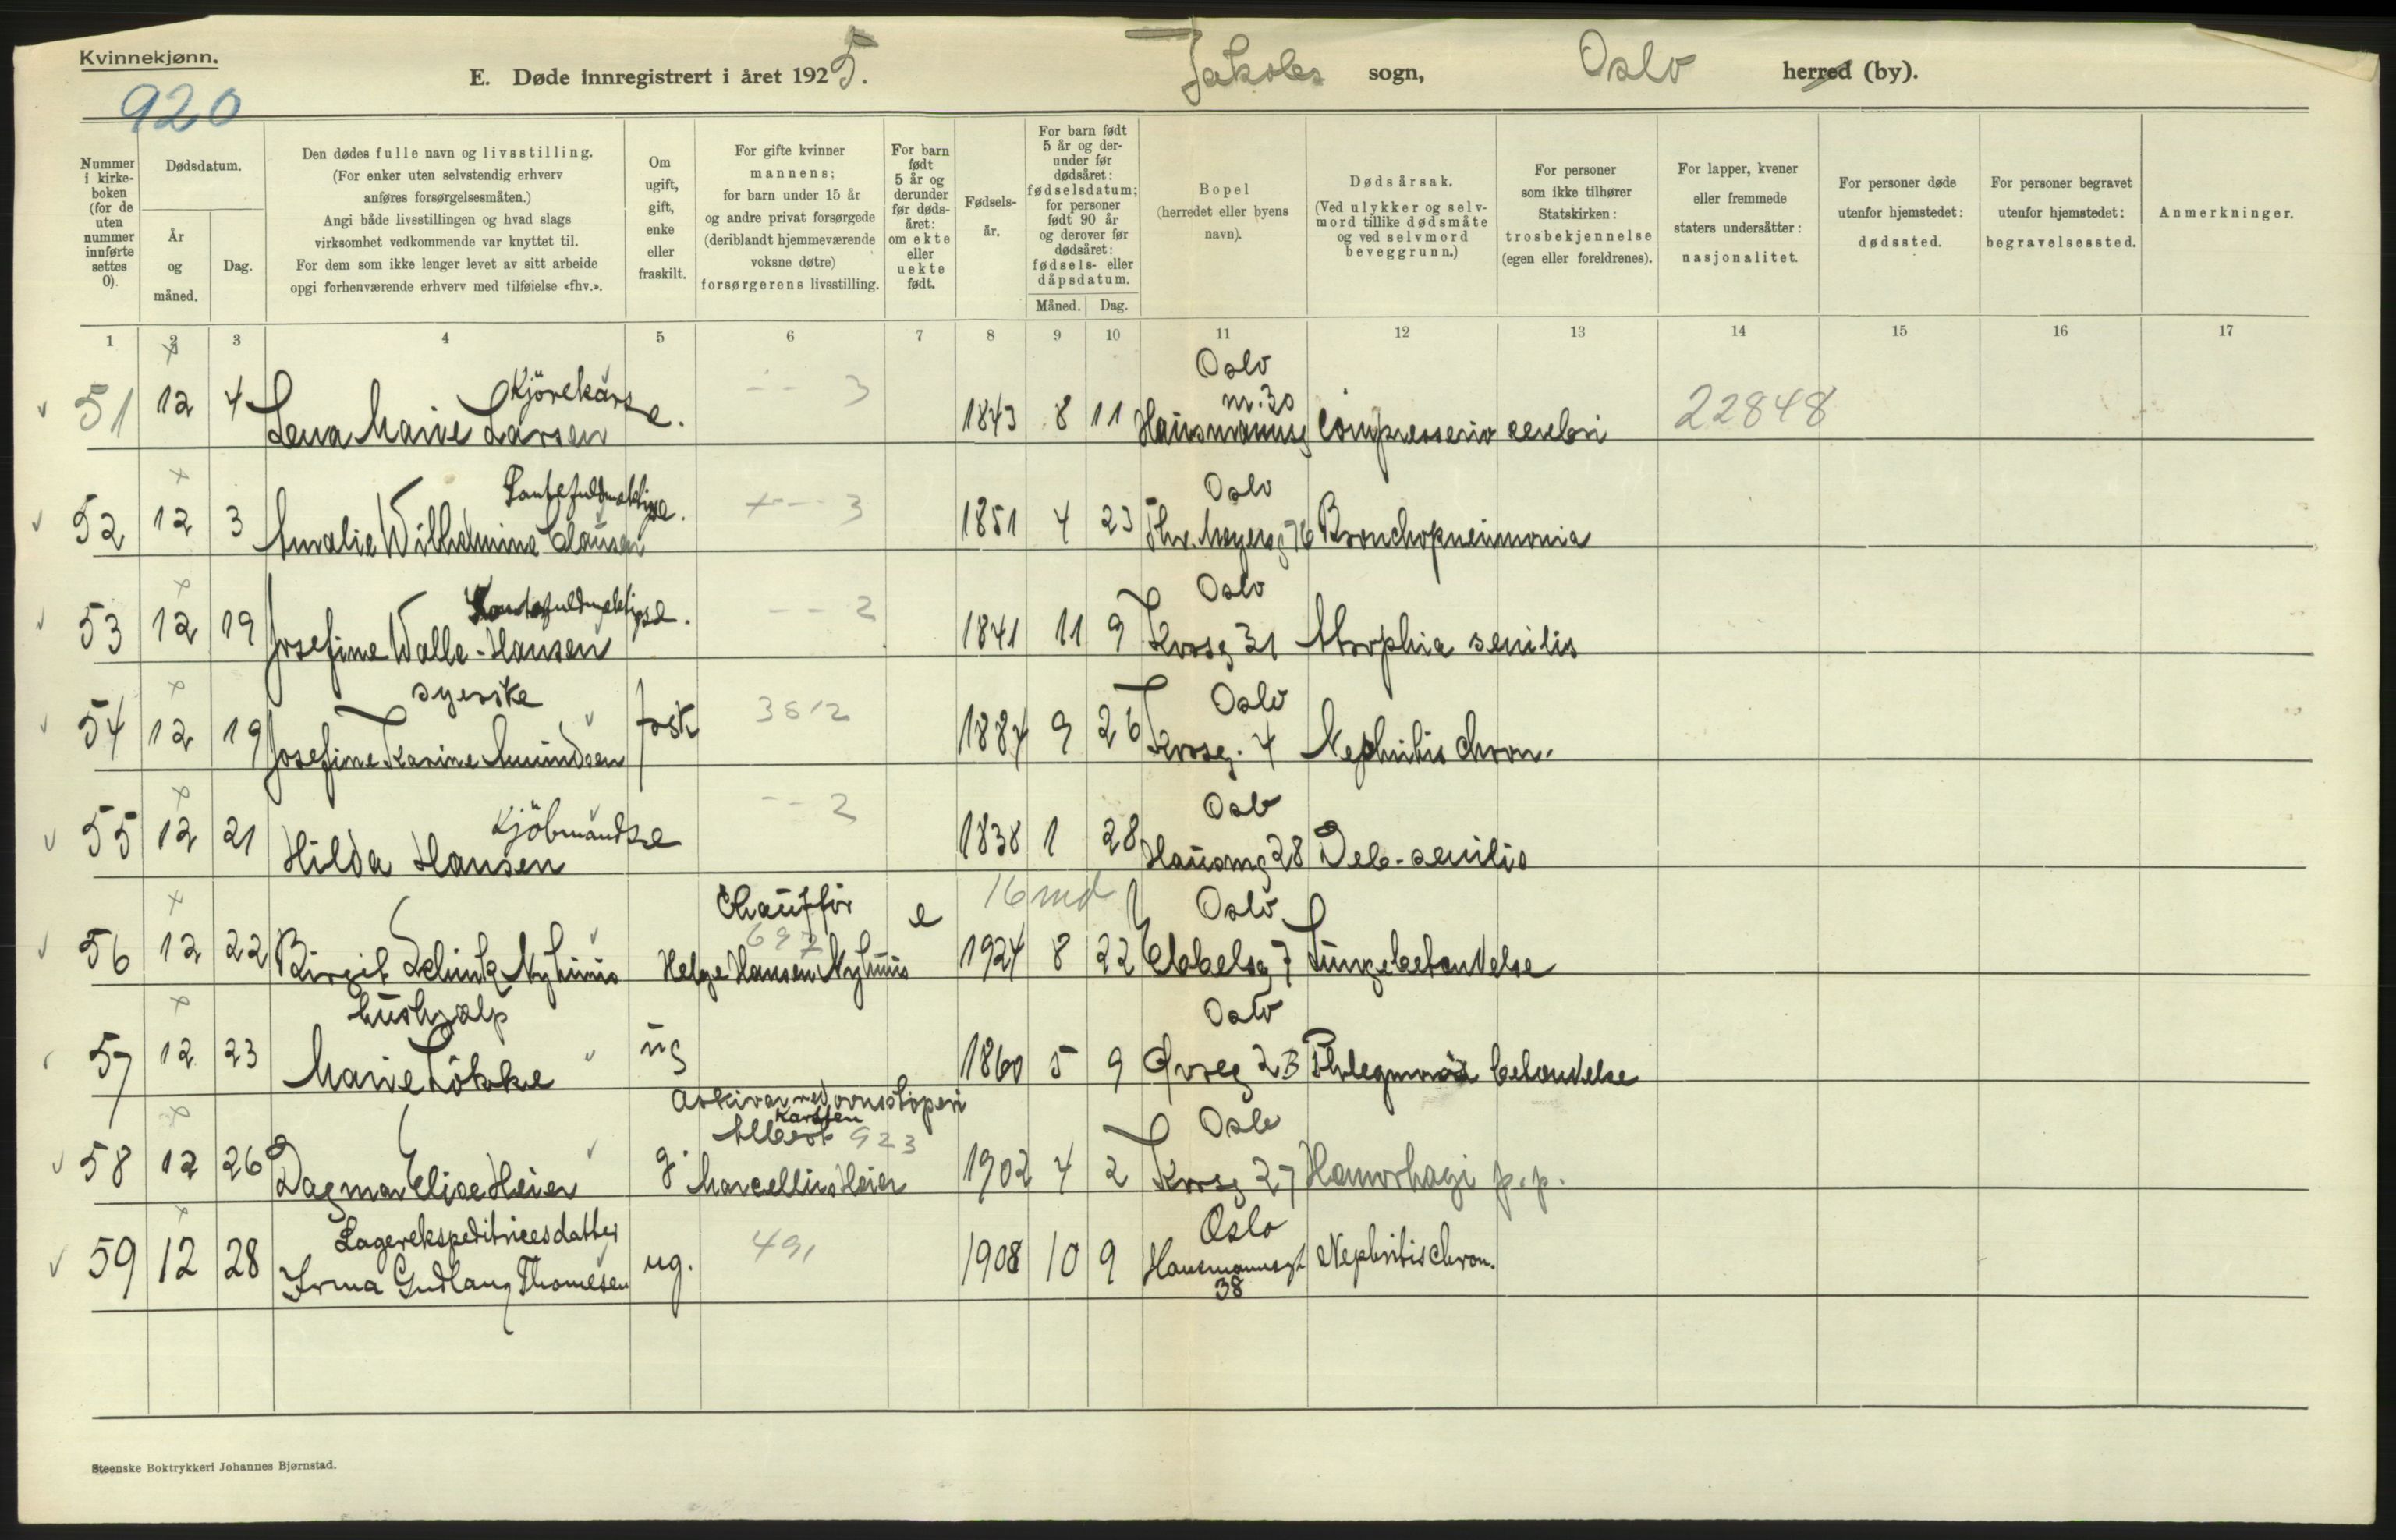 Kvinnekjønn.
920
E. Døde innregistrert i året 1925.
Jakobs sogn,
Oslo herred (by).
Nummer i kirke-boken (for de uten nummer innførte settes 0).
Dødsdatum.
År og måned.
Dag.
Den dødes fulle navn og livsstilling.
(For enker uten selvstendig erhverv
anføres forsørgelsesmåten.)
Angi både livsstillingen og hvad slags
virksomhet vedkommende var knyttet til.
For dem som ikke lenger levet av sitt arbeide
opgi forhenværende erhverv med tilføielse «fhv.».
Om ugift, gift, enke eller fraskilt.
For gifte kvinner
mannens;
for barn under 15 år
og andre privat forsørgede
(deriblandt hjemmeværende
voksne døtre)
forsørgerens livsstilling.
For barn født 5 år og derunder før døds-året: om ekte eller uekte født.
Fødsels-år.
For barn født 5 år og der-under før dødsåret: fødselsdatum; for personer født 90 år og derover før dødsåret: fødsels- eller dåpsdatum.
Måned. Dag.
Bopel
(herredet eller byens
navn).
Dødsårsak.
(Ved ulykker og selv-
mord tillike dødsmåte
og ved selvmord
beveggrunn.)
For personer
som ikke tilhører
Statskirken:
trosbekjennelse
(egen eller foreldrenes).
For lapper, kvener
eller fremmede
staters undersåtter:
nasjonalitet.
For personer døde
utenfor hjemstedet:
dødssted.
For personer begravet
utenfor hjemstedet:
begravelsessted.
Anmerkninger.
1 2 3 4 5 6 7 8 9 10 11 12 13 14 15 16 17
Kjörekars e. -- 3 Oslo
nr. 30
51 12 4 Lena Marie Larsen 1843 8 11 Hausmannsg Compressio cerebri 22848
Oslo
52 12 3 Amalie Wilhelmine Clausen e. -- 3 1851 4 23 Thv. Meyersg 76 Bronchopneumonia
Oslo
53 12 19 Josefine Walle-Hansen e. -- 2 1841 11 9 Torvg 31 Atrophia senilis
syerske Oslo
54 12 19 Josefine Karine Amundsen frsk 3512 1884 9 26 Torvg. 4 Nephritis chron.
Kjöbmands e -- 2 Oslo
55 12 21 Hilda Hansen 1838 1 28 Hausmg 28 Deb. senilis
Chauffør e 16 md Oslo
697
56 12 22 Birgit Nyhuus Helge Hansen Nyhuus 1924 8 22 Ebbelsg 7 Lungebetændelse
hushjælp Oslo
57 12 23 Marie Lökke ug 1860 5 9 Øvreg 2B betændelse
Karsten
Albert 923 Oslo
58 12 26 Dagmar Elise Heier g. Marcellius Heier 1902 4 2 Torvg 27 Hæmorhagi p.p.
Lagerekspeditricesdatter Oslo
59 12 28 Irma Gudlaug Thomesen ug. 491 1908 10 9 Hausmannsgt Nephritis chron.
38
Steenske Boktrykkeri Johannes Bjørnstad.